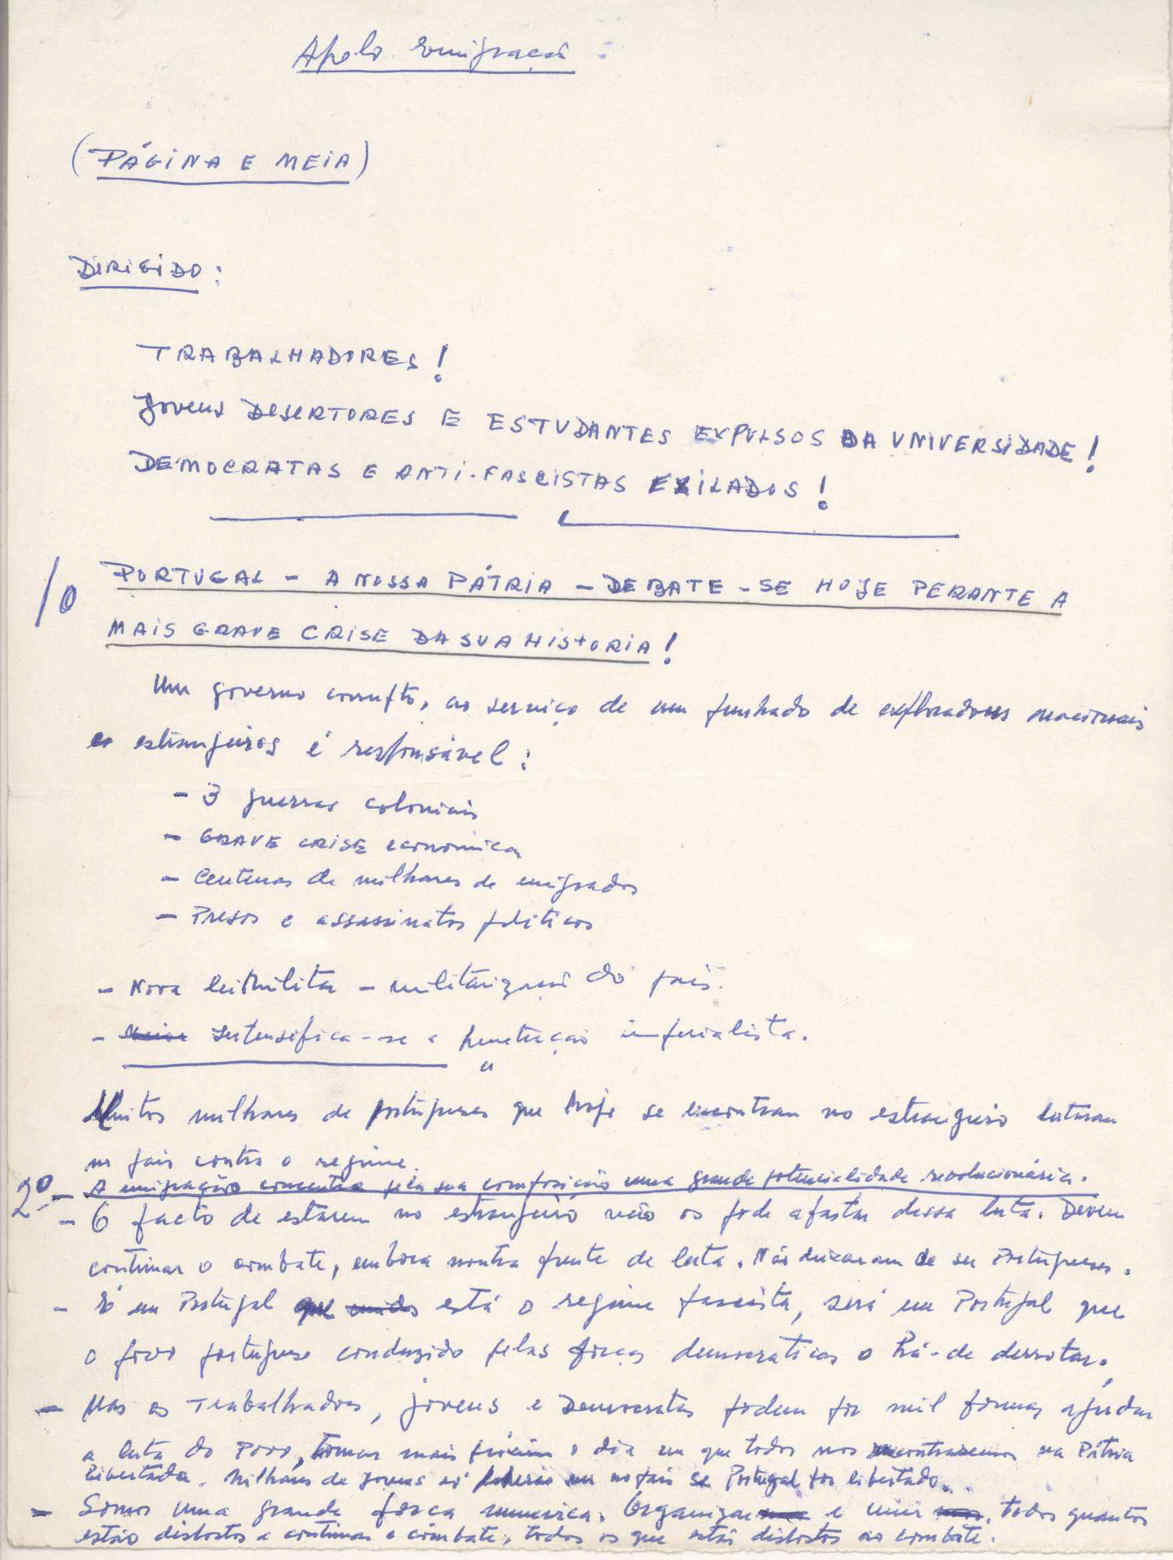 Apelo emigração :
(PÁGINA E MEIA)
DIRIGIDO :
TRABALHADORES !
Jovens DESERTORES E ESTUDANTES EXPULSOS DA UNIVERSIDADE !
DEMOCRATAS E ANTI-FASCISTAS EXILADOS !
1º PORTUGAL - A NOSSA PÁTRIA - DEBATE-SE HOJE PERANTE A
MAIS GRAVE CRISE DA SUA HISTORIA !
Um governo corrupto, ao serviço de um punhado de exploradores nacionais
e estrangeiros é responsável :
- 3 guerras coloniais
- GRAVE CRISE económica
- Centenas de milhares de emigrados
- Presos e assassinatos politicos
- Nova lei Militar - militarização do país.
- Intensifica-se a penetração imperialista.
Muitos milhares de portugueses que hoje se encontram no estrangeiro lutaram
no país contra o regime.
2º - A emigração concentra pela sua composição uma grande potencialidade revolucionária.
- O facto de estarem no estrangeiro não os pode afastar dessa luta. Devem
continuar o combate, embora noutra frente de luta. Não deixaram de ser Portugueses.
- É em Portugal que está o regime fascista, será em Portugal que
o povo português conduzido pelas forças democraticas o há-de derrotar.
- Mas os Trabalhadores, jovens e Democratas podem por mil formas ajudar
a luta do Povo, tornar mais próximo o dia em que todos nos encontraremos na Pátria
libertada. Milhares de jovens só poderão em no país se Portugal for libertado.
- Somos uma grande força numerica. Organizar e unir todos quantos
estão dispostos a continuar o combate, todos os que estão dispostos ao combate.